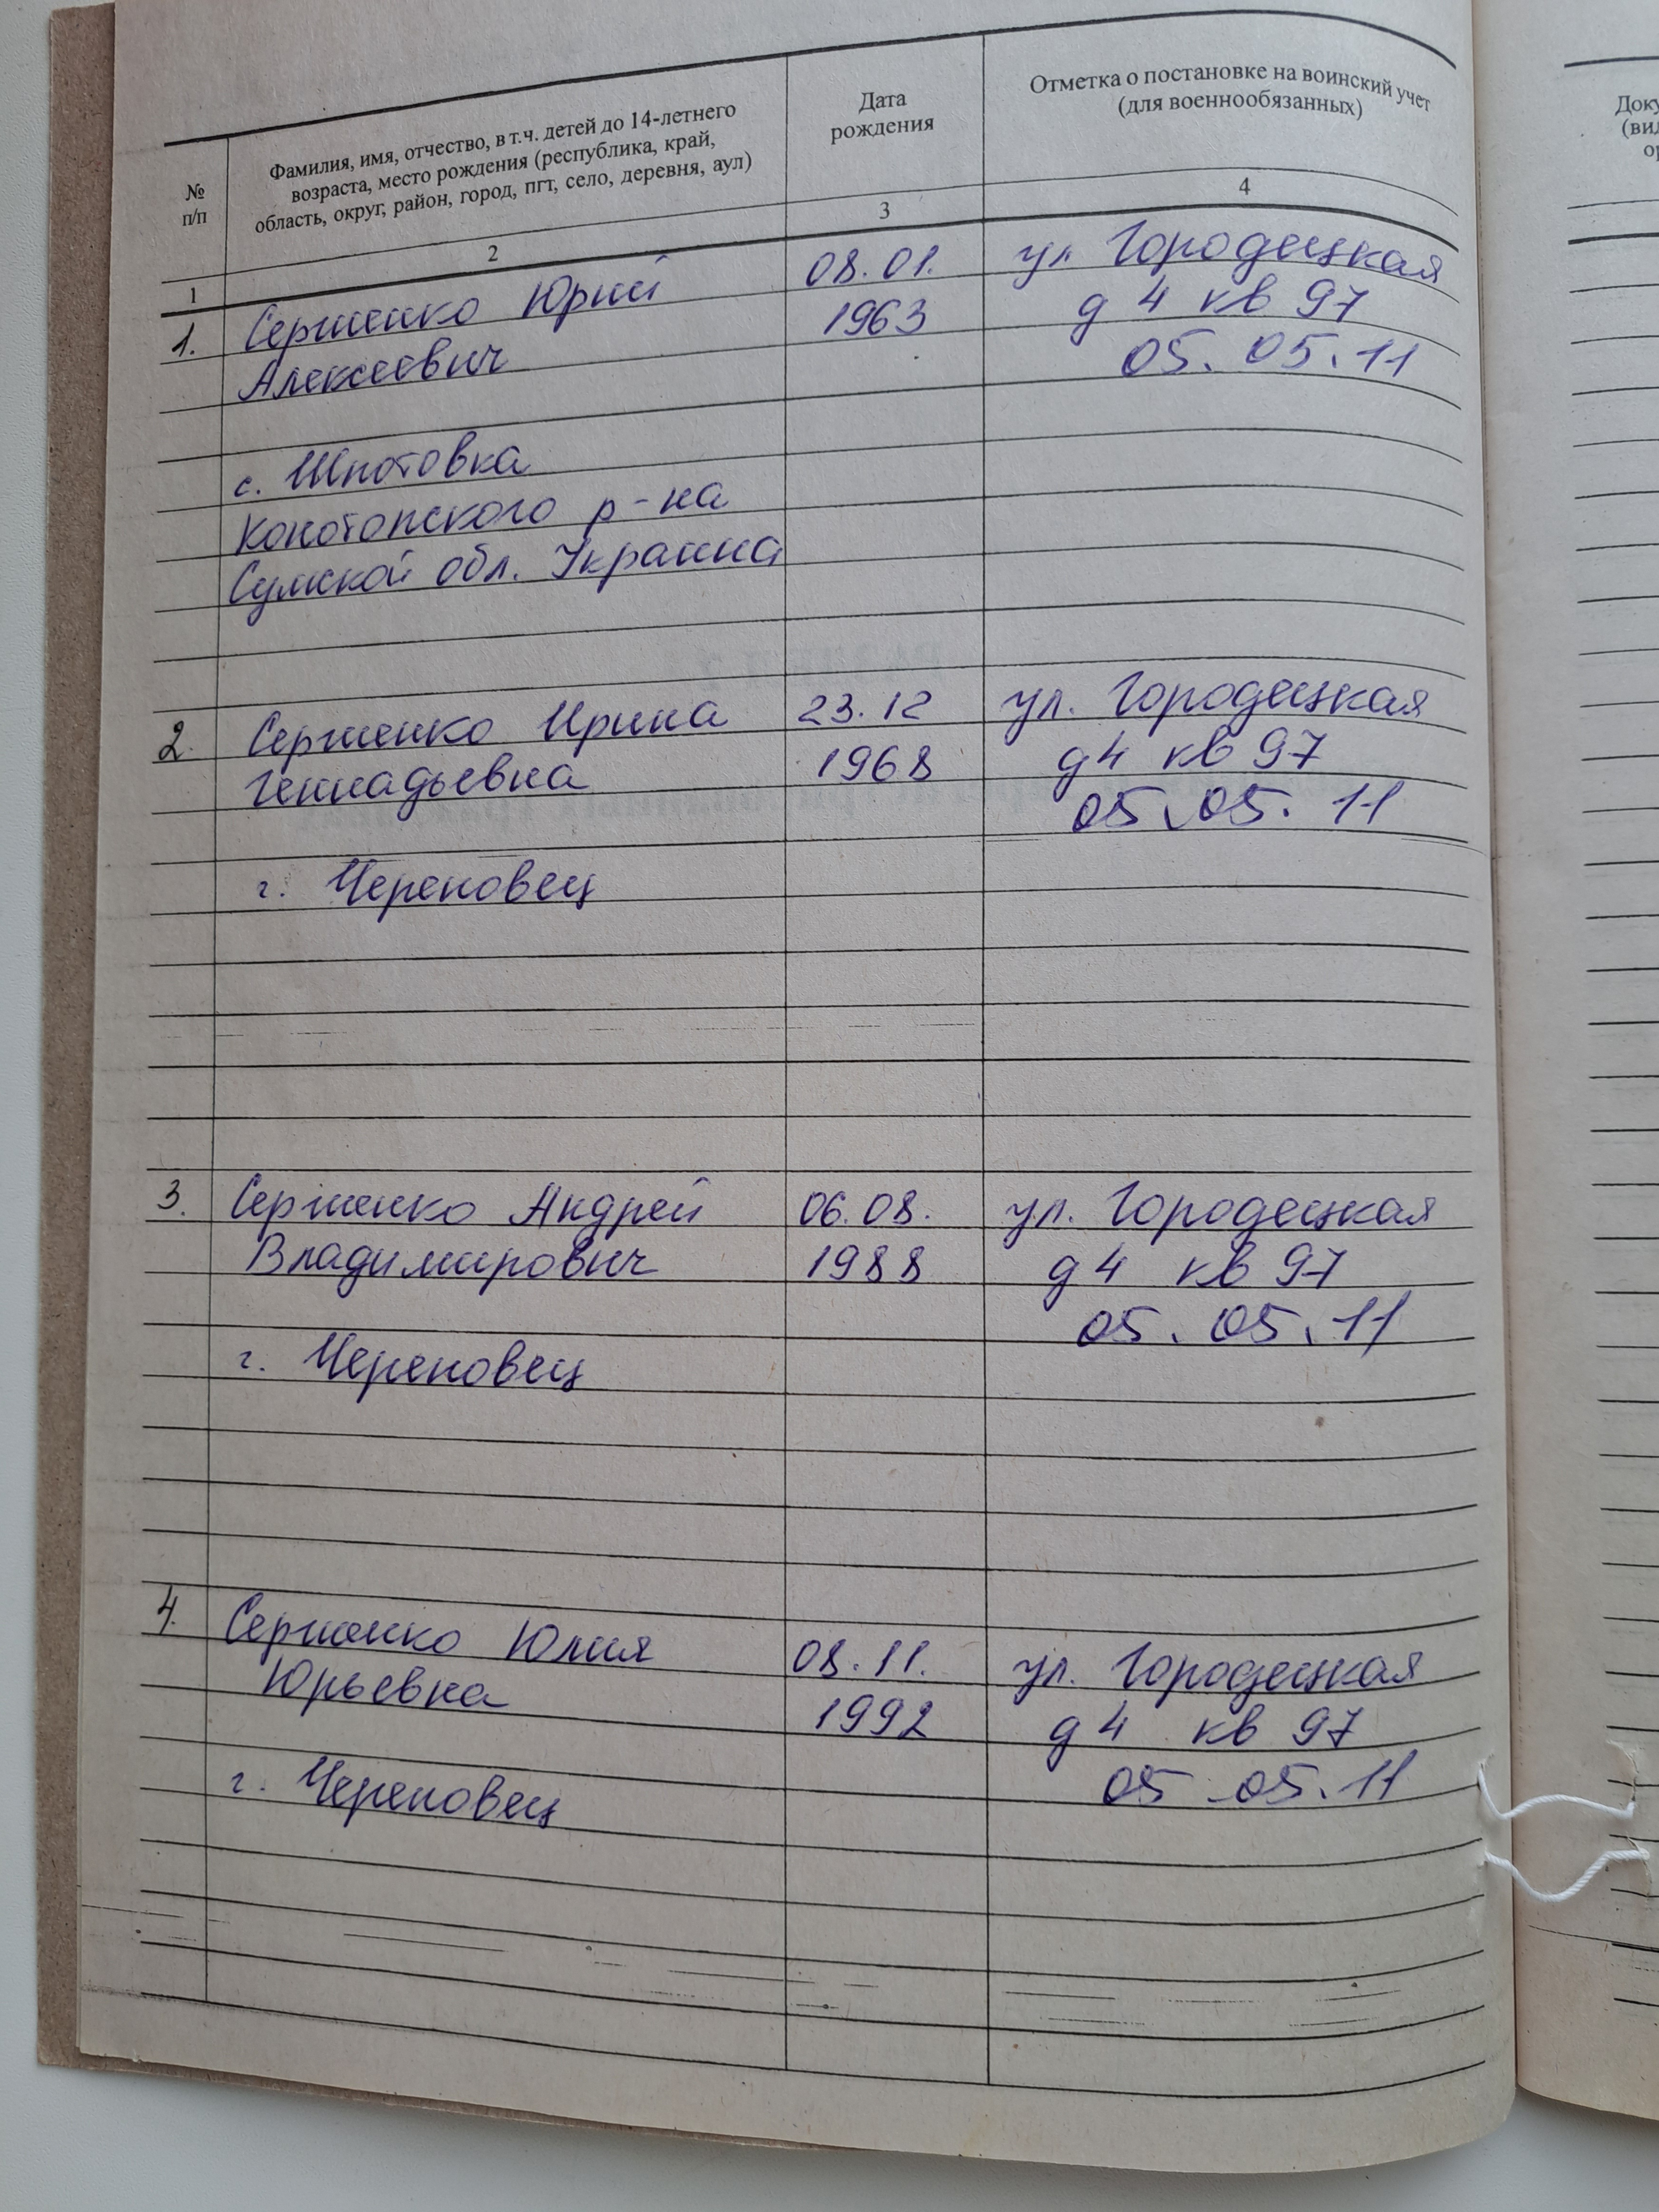 №
п/п
Фамилия, имя, отчество, в т.ч. детей до 14-летнего
возраста, место рождения (республика, край,
область, округ, район, город, пгт, село, деревня, аул)
Дата
рождения
Отметка о постановке на воинский учет
(для военнообязанных)
1
2
3
4
1. Сергиенко Юрий 08.01. ул Городецкая
Алексеевич 1963 д 4 кв 97
05.05.11
с. Шпотовка
Конотопского р-на
Сумской обл. Украина
2. Сергиенко Ирина 23.12 ул. Городецкая
Геннадьевна 1968 д 4 кв 97
05.05.11
г. Череповец
3. Сергиенко Андрей 06.08. ул. Городецкая
Владимирович 1988 д 4 кв 97
05.05.11
г. Череповец
4. Сергиенко Юлия 08.11. ул. Городецкая
Юрьевна 1992 д 4 кв 97
05.05.11
г. Череповец